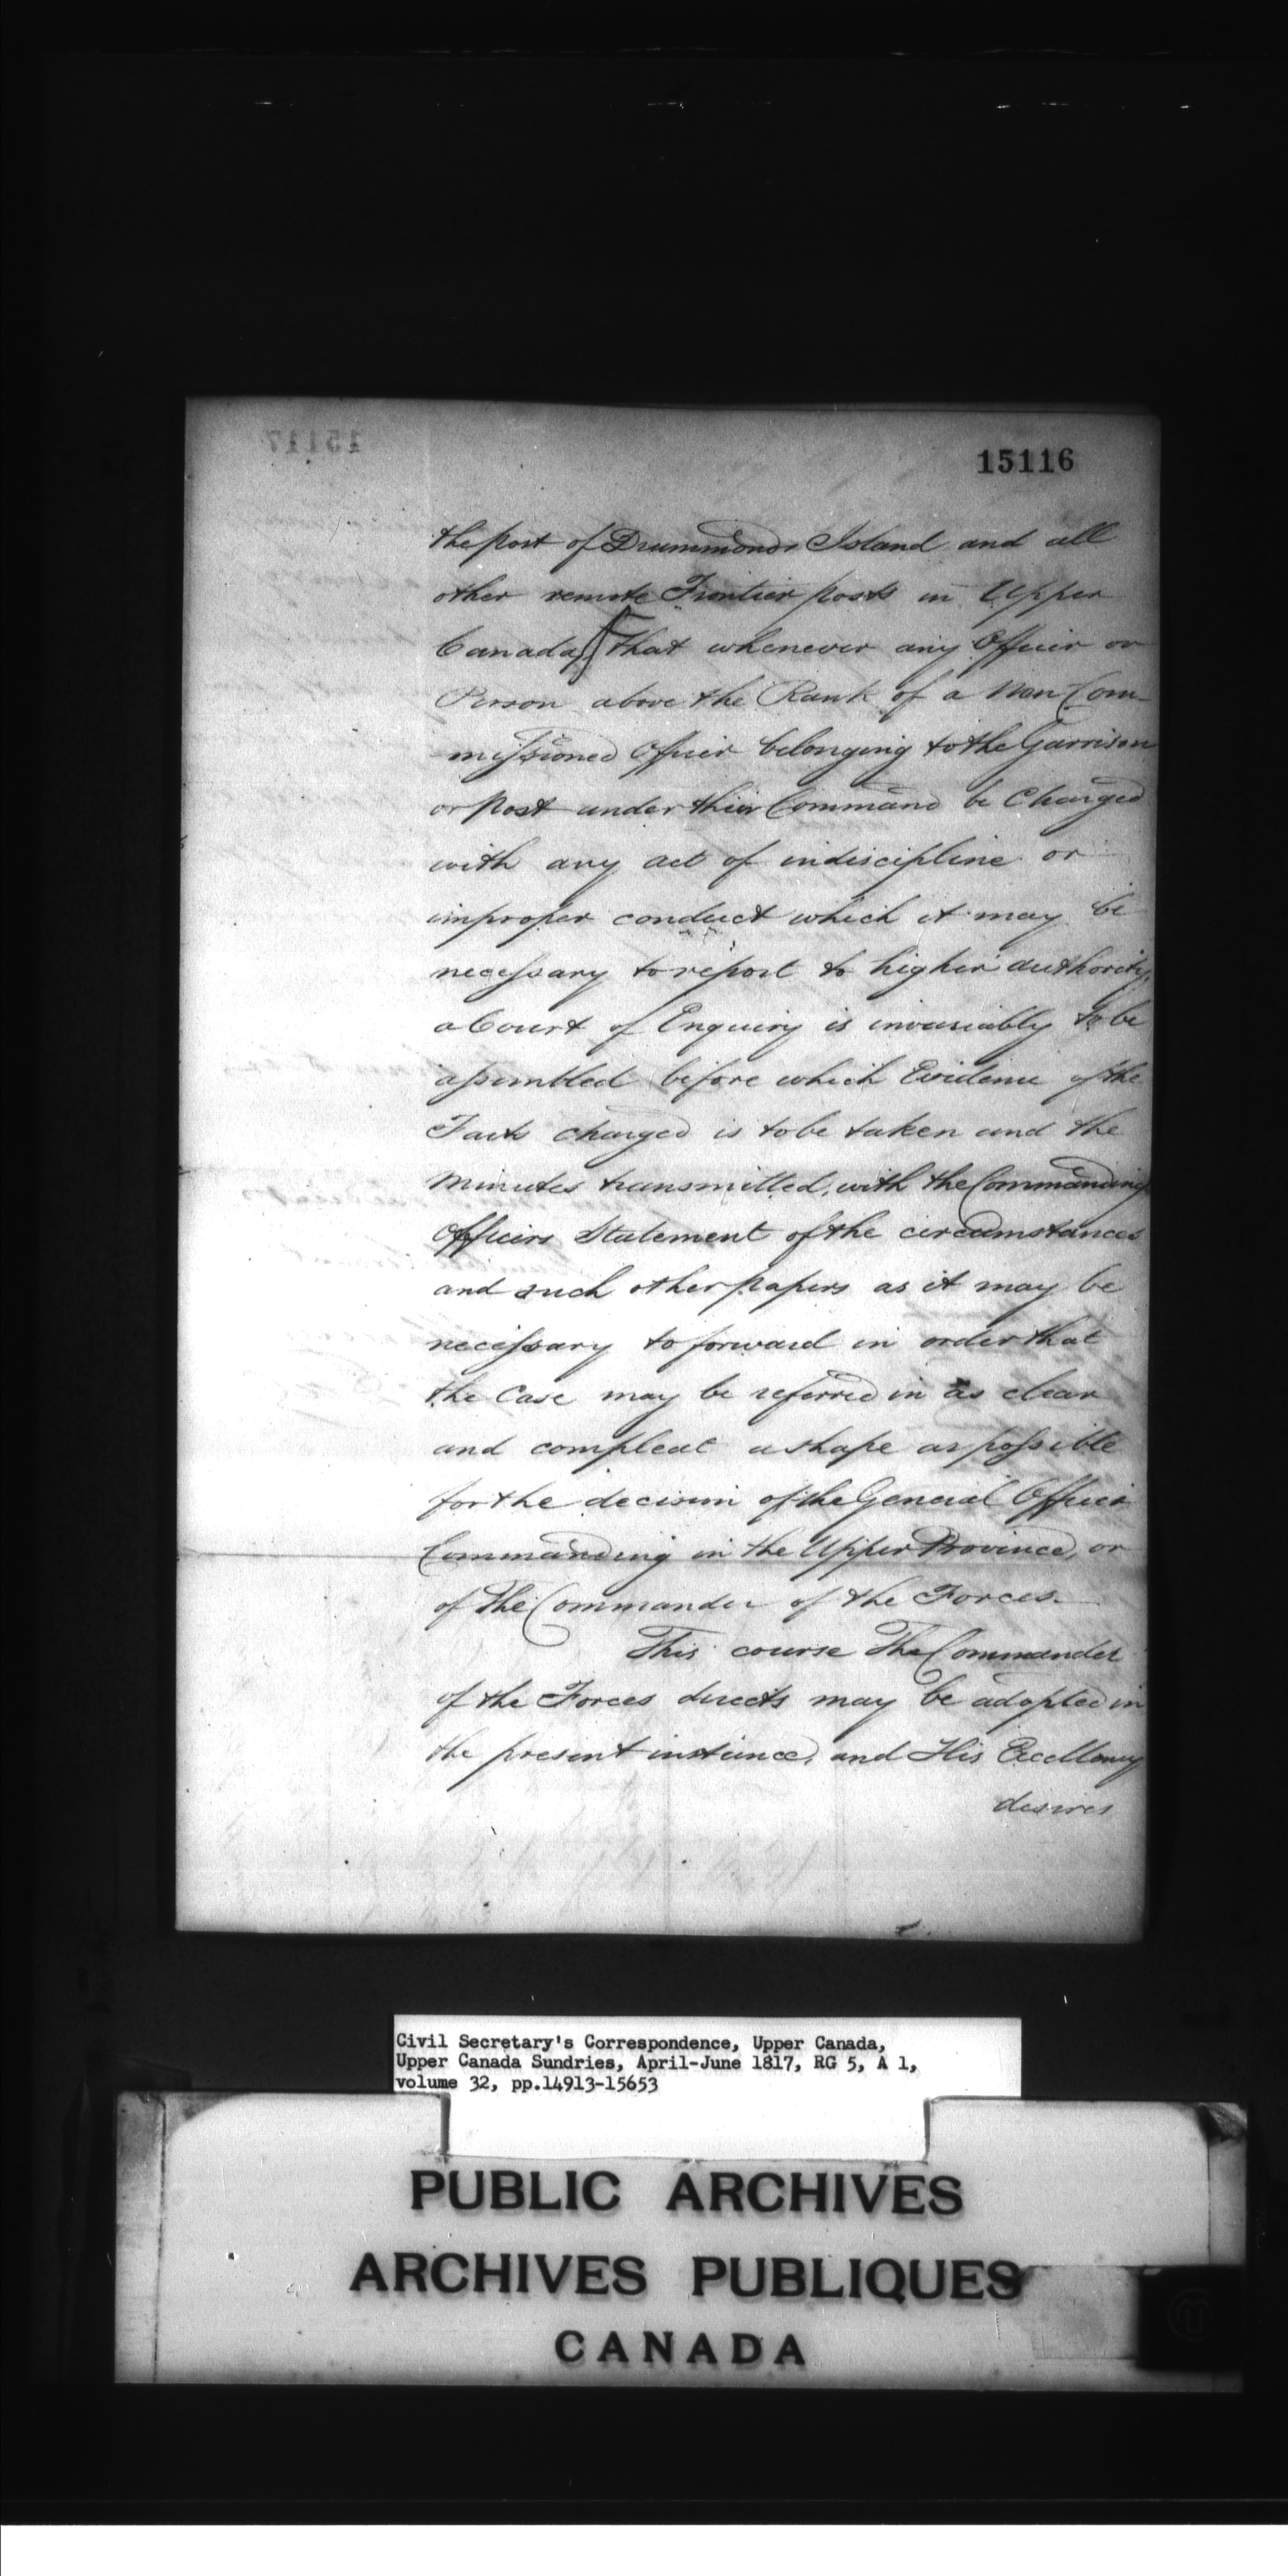 15116
the post of Drummonds Island and all
other remote Frontier posts in Upper
Canada, that whenever any Officer or
Person above the Rank of a Non Com-
-missioned Officer belonging to the Garrison
or Post under their Command be Charged
with any act of indiscipline or
improper conduct which it may be
necessary to report to higher authority,
a Court of Enquiry is invariably to be
assembled before which Evidence of the
Facts charged is to be taken and the
Minutes transmitted, with the Commanding
Officers Statement of the circumstances
and such other papers as it may be
necessary to forward in order that
the Case may be referred in as clear
and compleat a shape as possible
for the decision of the General Officer
Commanding in the Upper Province, or
of The Commander of the Forces.
This course The Commander
of the Forces directs may be adopted in
the present instance, and His Excellency
desires
Civil Secretary's Correspondence, Upper Canada,
Upper Canada Sundries, April-June 1817, RG 5, A 1,
volume 32, pp.14913-15653
PUBLIC ARCHIVES
ARCHIVES PUBLIQUES
CANADA